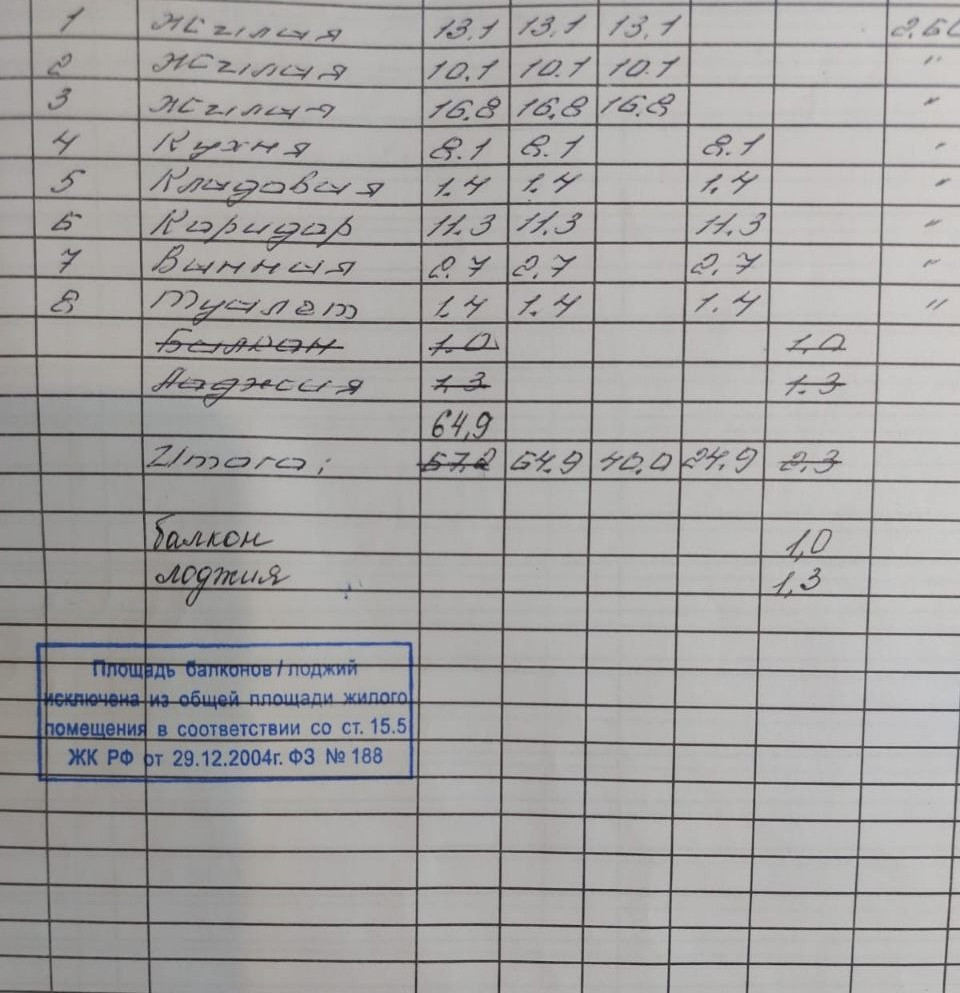 1 Жилая 13,1 13,1 13,1 2,60
2 Жилая 10.1 10.1 10.1 "
3 Жилая 16.8 16.8 16.8 "
4 Кухня 8.1 8.1 8.1 "
5 Кладовая 1.4 1.4 1.4 "
6 Коридор 11.3 11.3 11.3 "
7 Ванная 2.7 2,7 2.7 "
8 Туалет 1.4 1.4 1.4 "
Балкон 1.0 1,0
Лоджия 1,3 1.3
64,9
Итого: 67,2 64.9 40,0 24.9 2,3
балкон 1,0
лоджия 1,3
Площадь балконов / лоджий
исключена из общей площади жилого
помещения в соответствии со ст. 15.5
ЖК РФ от 29.12.2004г. ФЗ № 188